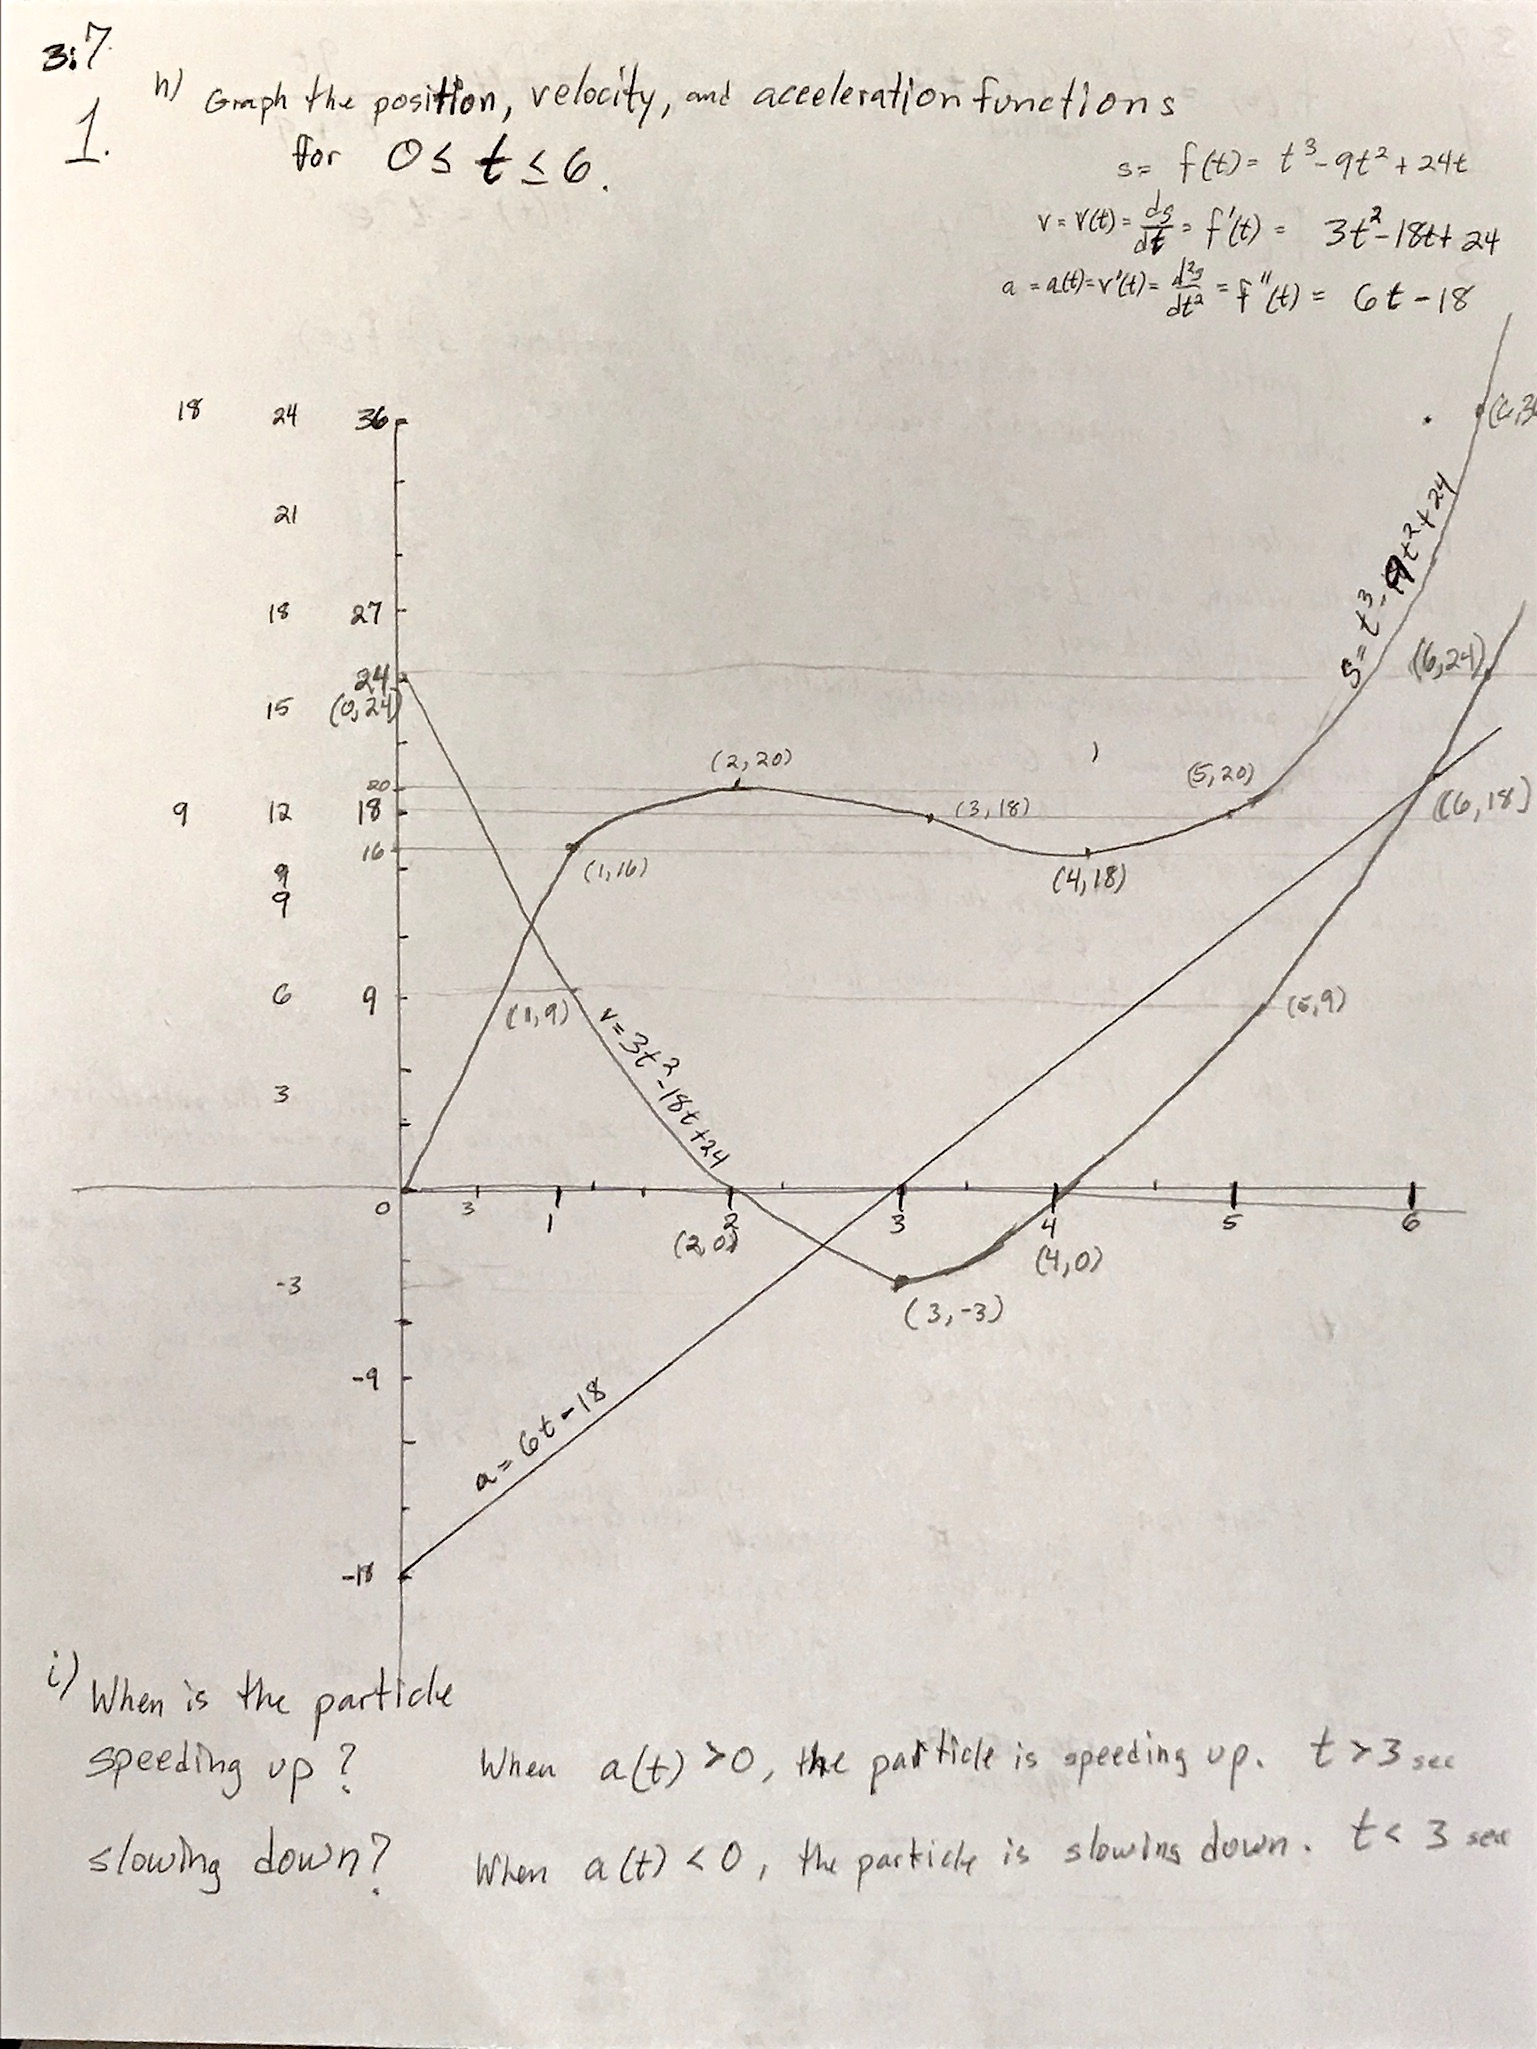 3.7
1.
h) Graph the position, velocity, and acceleration functions
for 0 ≤ t ≤ 6.
s = f(t) = t³ - 9t² + 24t
v = v(t) = ds/dt = f'(t) = 3t² - 18t + 24
a = a(t) = v'(t) = d²s/dt² = f''(t) = 6t - 18
18 24 36
21
18 27
24
15 (0,24)
20
9 12 18
16
9
9
6 9
3
0 3 1 2 3 4 5 6
-3
-9
-18
(2,20)
(1,16)
(3,18)
(4,18)
(5,20)
s = t³ - 9t² + 24
(6,24)
(6,18)
(1,9)
v = 3t² - 18t + 24
(5,9)
(2,0)
(4,0)
(3,-3)
a = 6t - 18
i) When is the particle
speeding up? When a(t) > 0, the particle is speeding up. t > 3 sec
slowing down? When a(t) < 0, the particle is slowing down. t < 3 sec